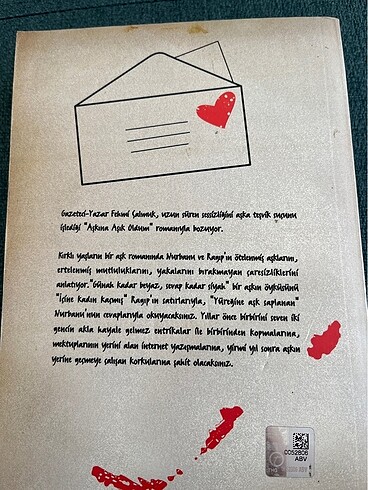 Gazeteci-Yazar Fehmi Çalmuk, uzun süren sessizliğini aşka teşvik suçunu
işlediği "Aşkına Aşık Oldum" romanıyla bozuyor.
Kırklı yaşların bir aşk romanında Nurbanu ve Ragıp'ın ötelenmiş aşklarını,
ertelenmiş mutluluklarını, yakalarını bırakmayan çaresizliklerini
anlatıyor. "Günah kadar beyaz, sevap kadar siyah" bir aşkın öyküsünü
"İçine kadın kaçmış" Ragıp'ın satırlarıyla, "Yüreğine aşk saplanan"
Nurbanu'nun cevaplarıyla okuyacaksınız. Yıllar önce birbirini seven iki
gencin akla hayale gelmez entrikalar ile birbirinden kopmalarına,
mektuplarının yerini alan internet yazışmalarına, yirmi yıl sonra aşkın
yerine geçmeye çalışan korkularına şahit olacaksınız.
0052806
ABV